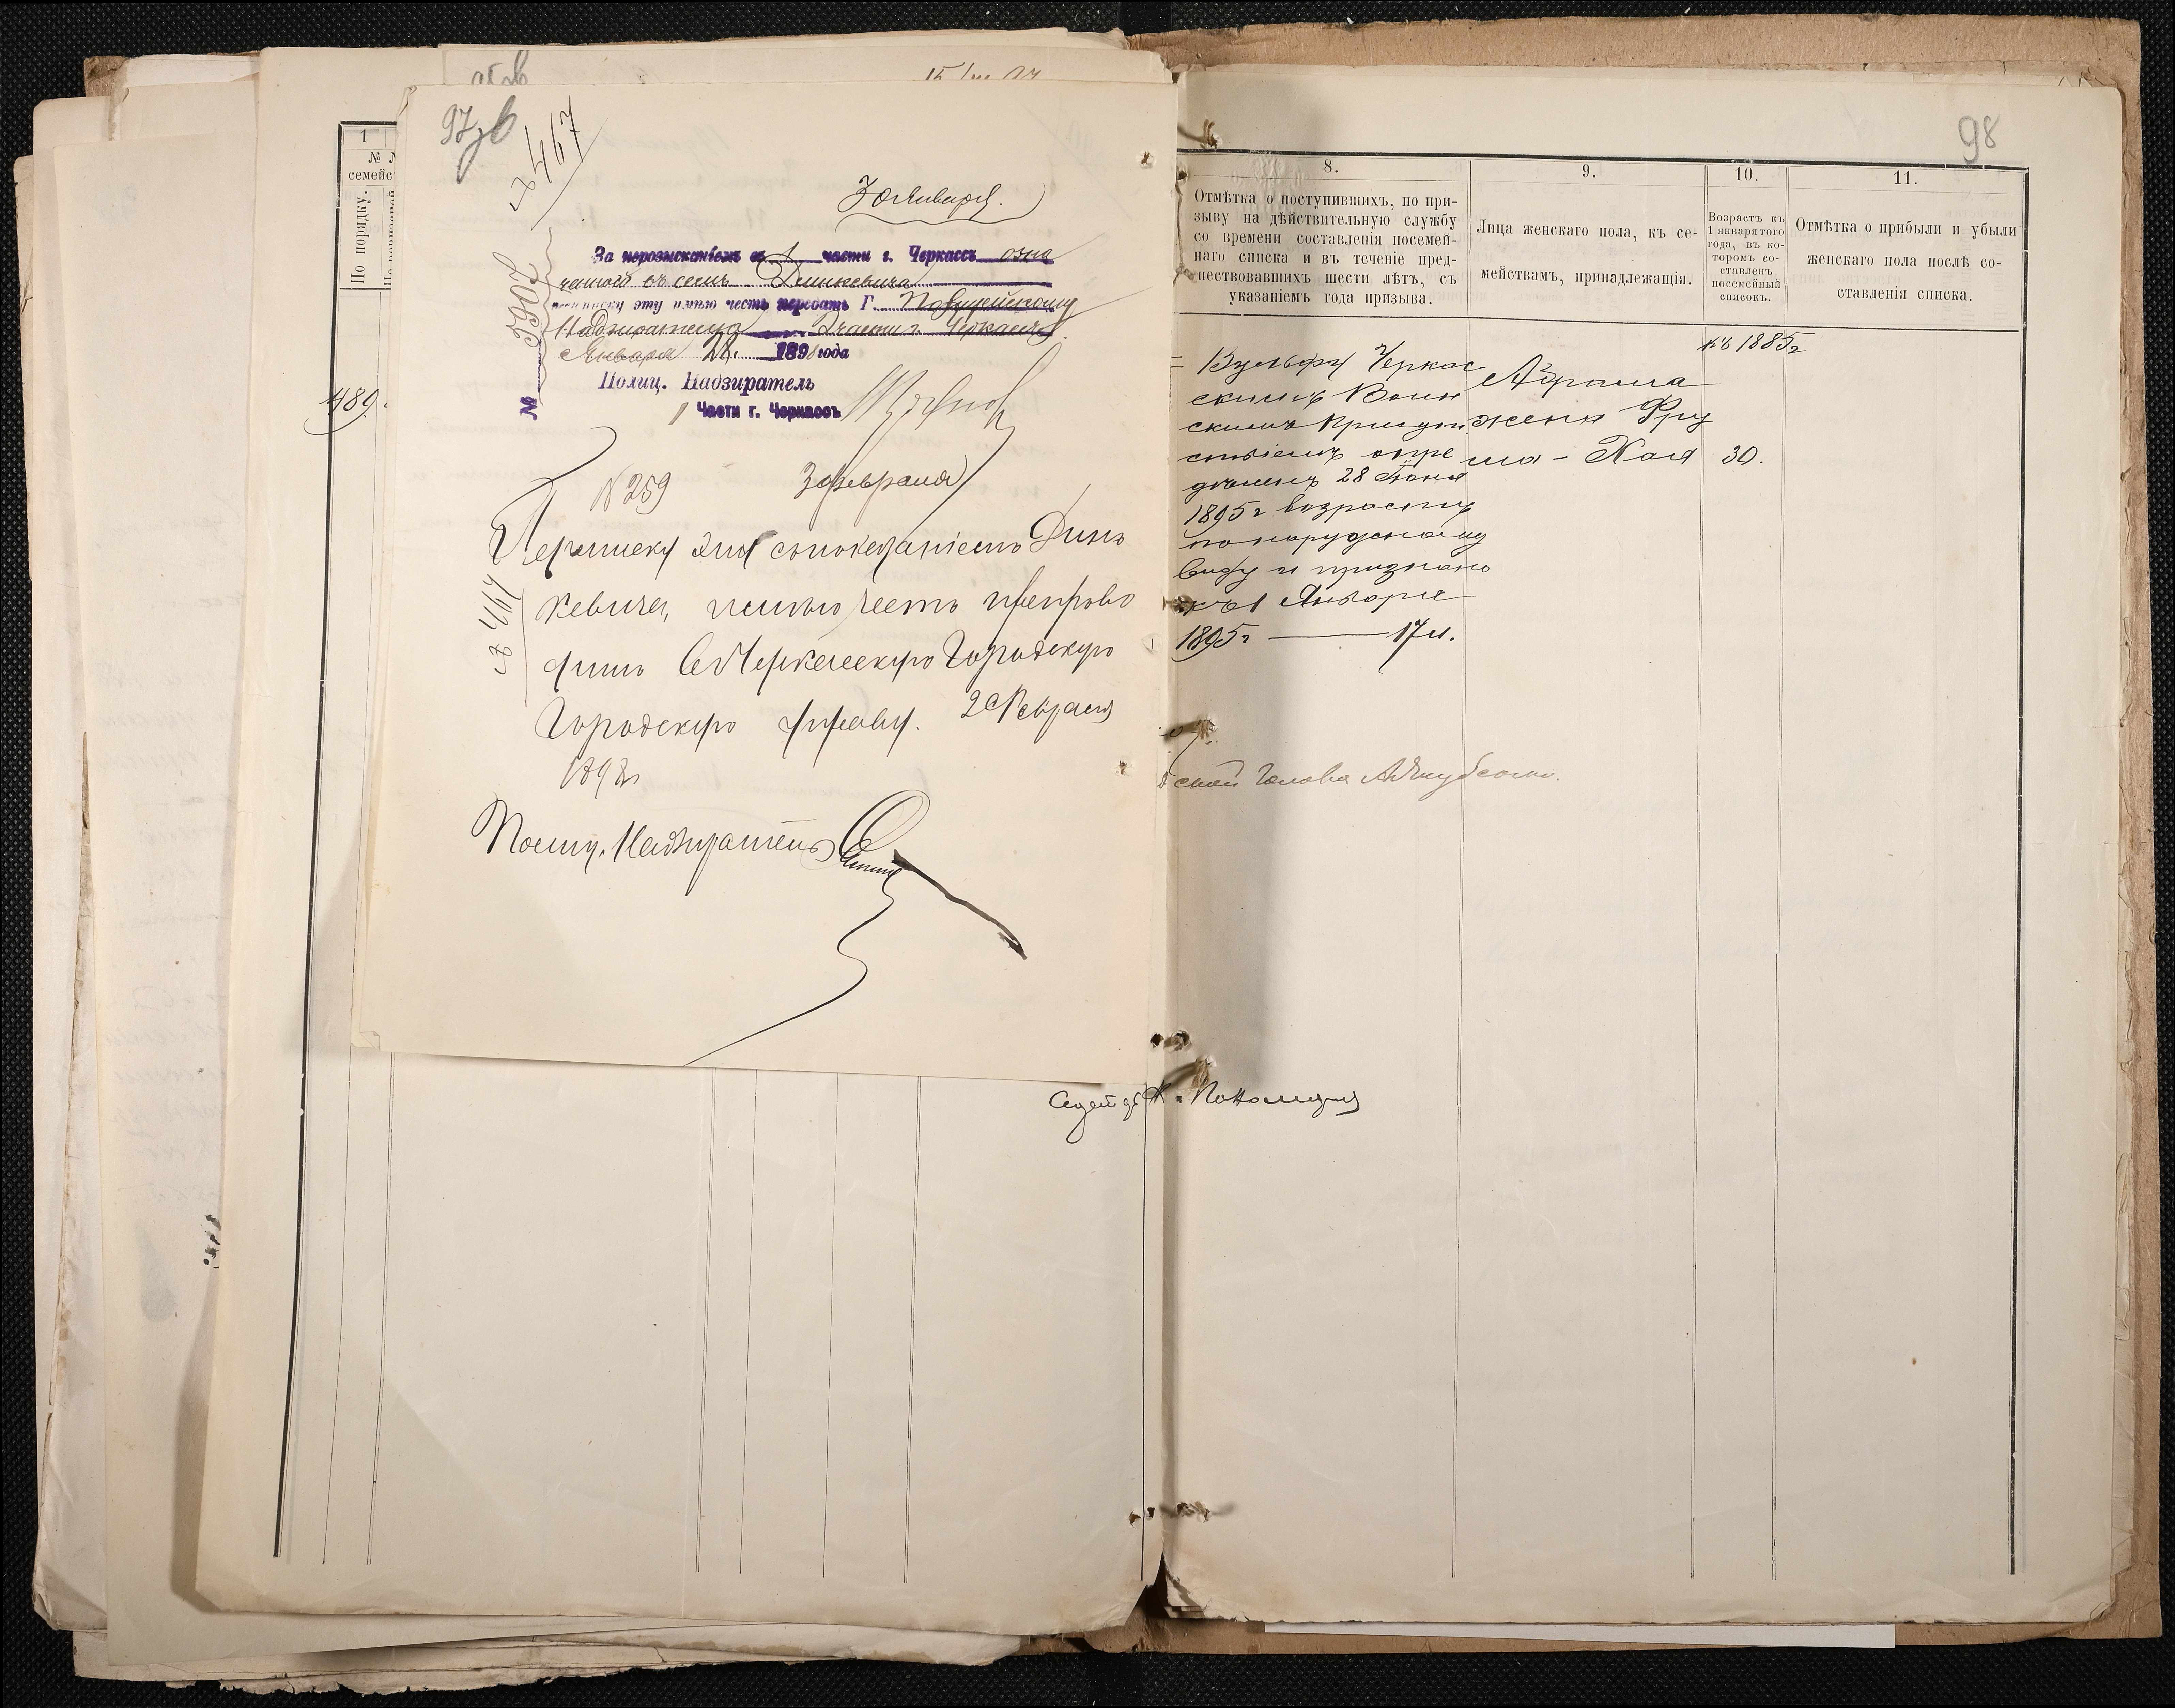 97 зв
98
№ 467
30 Января.
За нерозысканіемъ въ 1 части г. Черкассъ озна
ченной въ семъ Динкевича
переписку эту имѣю честь передать Г. Полицейскому
Надзирателю 2 части г. Черкассъ
Января 28. 1898 года
Полиц. Надзиратель
1 Части г. Черкассъ
№
№ 259
3 Февраля
Переписку эту съ показаніемъ Динь
кевича, имѣю честь препрово
дить въ Черкасскую Городскую
Городскую Управу. 2 Февраля
1898 г.
Полиц. Надзиратель
№ 464
489.
1
семейс
По порядку.
8.
Отмѣтка о поступившихъ, по при-
зыву на дѣйствительную службу
со времени составленія посемей-
наго списка и въ теченіе пред-
шествовавшихъ шести лѣтъ, съ
указаніемъ года призыва.
9.
Лица женскаго пола, къ се-
мействамъ, принадлежащія.
10.
Возрастъ къ
1 января того
года, въ ко-
торомъ со-
ставленъ
посемейный
списокъ.
11.
Отмѣтка о прибыли и убыли
женскаго пола послѣ со-
ставленія списка.
къ 1885 г
Вульфъ Черкас
скимъ Воин
скимъ Присут
ствіемъ опре
дѣленъ 28 Іюня
1895 г возрастъ
по наружному
виду и признано
къ 1 Января
1895 г — 17 л.
Абрама
жена Фру
ма - Хая 30.
ской Голова